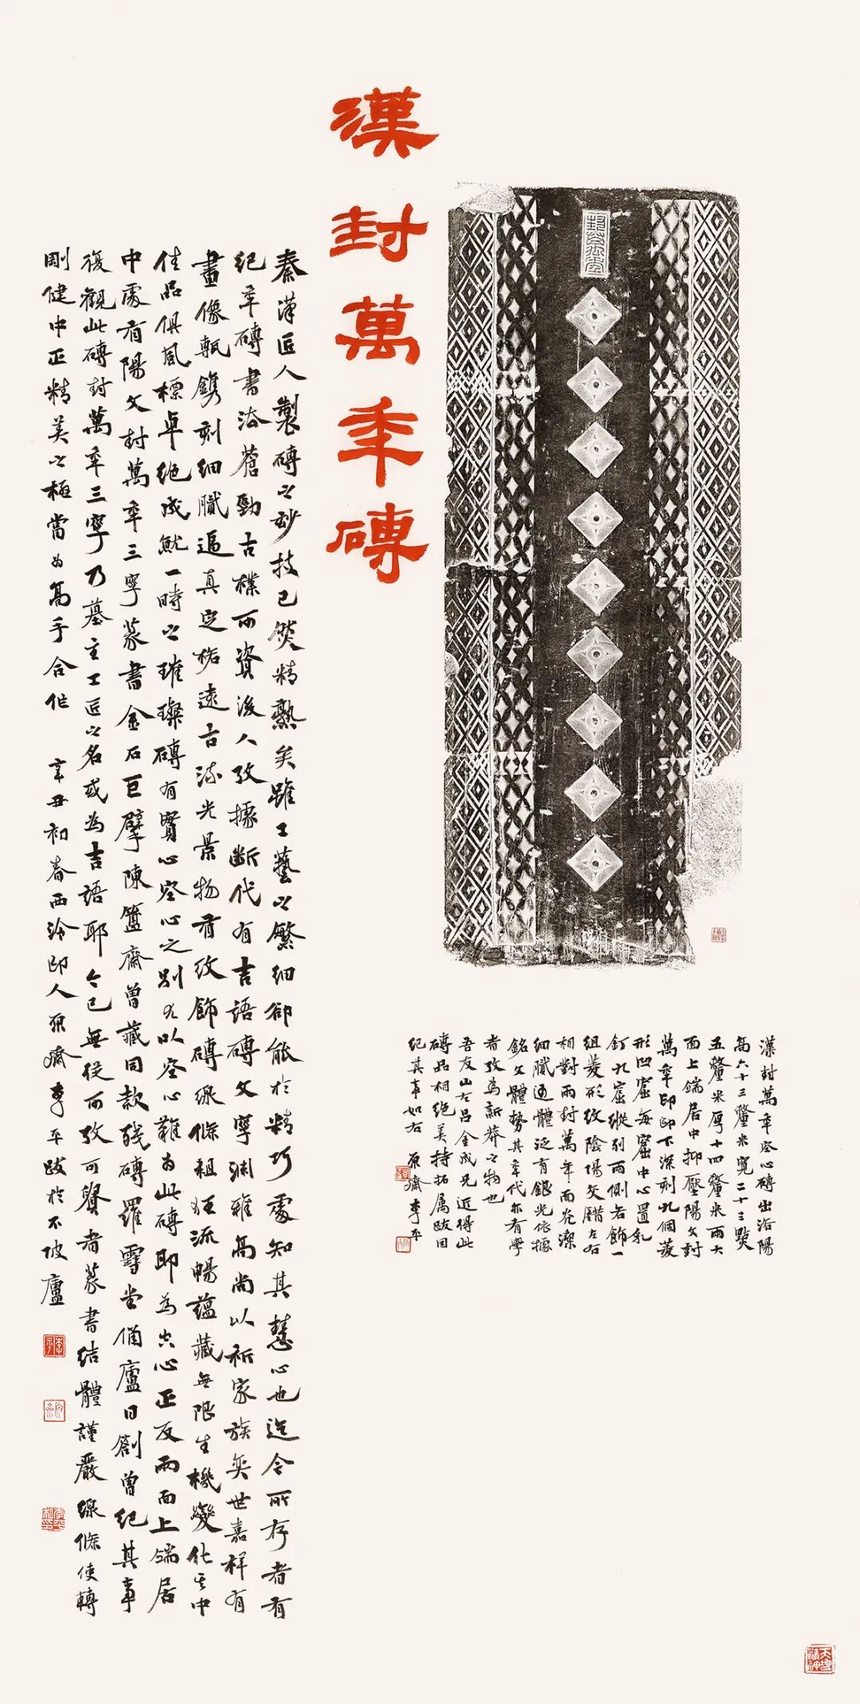 漢封萬年磚
秦漢匠人製磚之妙技已臻精熟矣雖工藝之繁細卻能於精巧處知其慧心也迄今所存者有
紀年磚書法蒼勁古樸可資後人考據斷代有吉語磚文字淵雅高尚以祈家族奕世嘉祥有
畫像甎鐫刻細膩逼真定格遠古流光景物有紋飾磚線條粗狂流暢蘊藏無限生機變化其中
佳品俱風標卓絕成就一時之璀璨磚有實心空心之別尤以空心難為此磚即為空心正反兩面上端居
中處有陽文封萬年三字篆書金石巨擘陳簠齋曾藏同款殘磚羅雪堂俑廬日劄曾紀其事
復觀此磚封萬年三字乃墓主工匠之名或為吉語耶今已無從可考可賢者篆書結體謹嚴線條使轉
剛健中正精美之極當為高手合作 辛丑初春西泠印人 齋李平跋於不波廬
漢封萬年空心磚出洛陽
高六十三釐米寬二十三點
五釐米厚十四釐米兩大
面上端居中抑壓陽文封
萬年印印下深刻九個菱
形凹窟每窟中心置乳
釘九窟縱列兩側各飾一
組菱形紋陰陽交錯左右
相對而封萬年面尤深
細膩通體泛有銀光依據
銘文體勢其年代亦有學
者考為新莽之物也
吾友山左呂金成兄近得此
磚品相絕美持拓屬跋因
紀其事如右 齋李平
封萬年